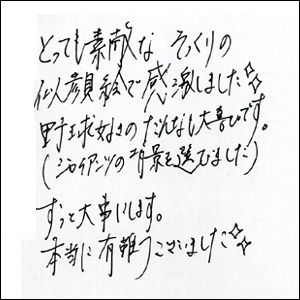 とっても素敵な そっくりの
似顔絵で感激しました✨
野球好きのだんなも大喜びです。
(ジャイアンツの背景を選びました)
ずっと大事にします。
本当に有難うございました✨